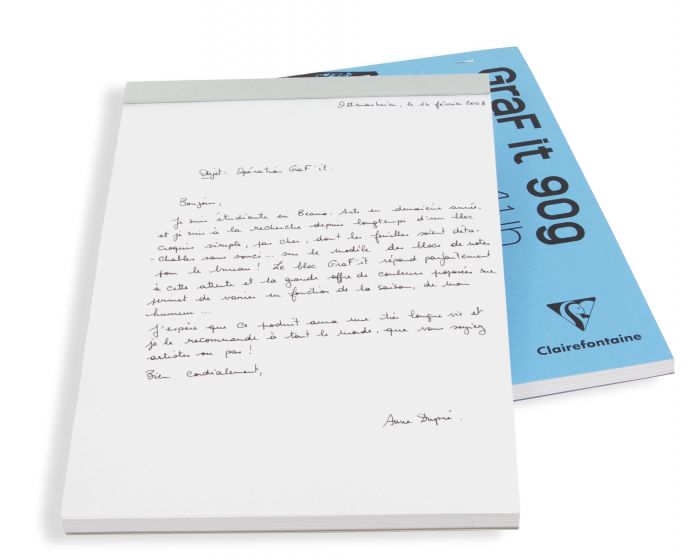 Ottmarsheim, le 14 février 2008
Objet : Opération GraF'it.
Bonjour,
Je suis étudiante en Beaux-Arts en deuxième année,
et je suis à la recherche depuis longtemps d'un bloc
croquis simple, pas cher, dont les feuilles soient déta-
-chables sans souci... sur le modèle des blocs de note
pour le bureau ! Le bloc GraF'it répond parfaitement
à cette attente et la grande offre de couleurs proposées me
permet de varier en fonction de la saison, de mon
humeur...
J'espère que ce produit aura une très longue vie et
je le recommande à tout le monde, que vous soyiez
artistes ou pas !
Bien cordialement,
Anne Dupré.
GraF it 90g
Clairefontaine